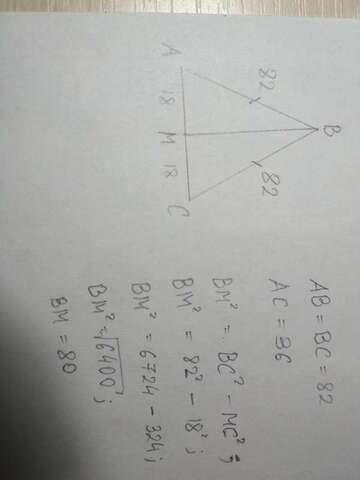 A
82
18
M
B
18
82
C
AB = BC = 82
AC = 36
BM² = BC² - MC²;
BM² = 82² - 18²;
BM² = 6724 - 324;
BM² = √6400;
BM = 80